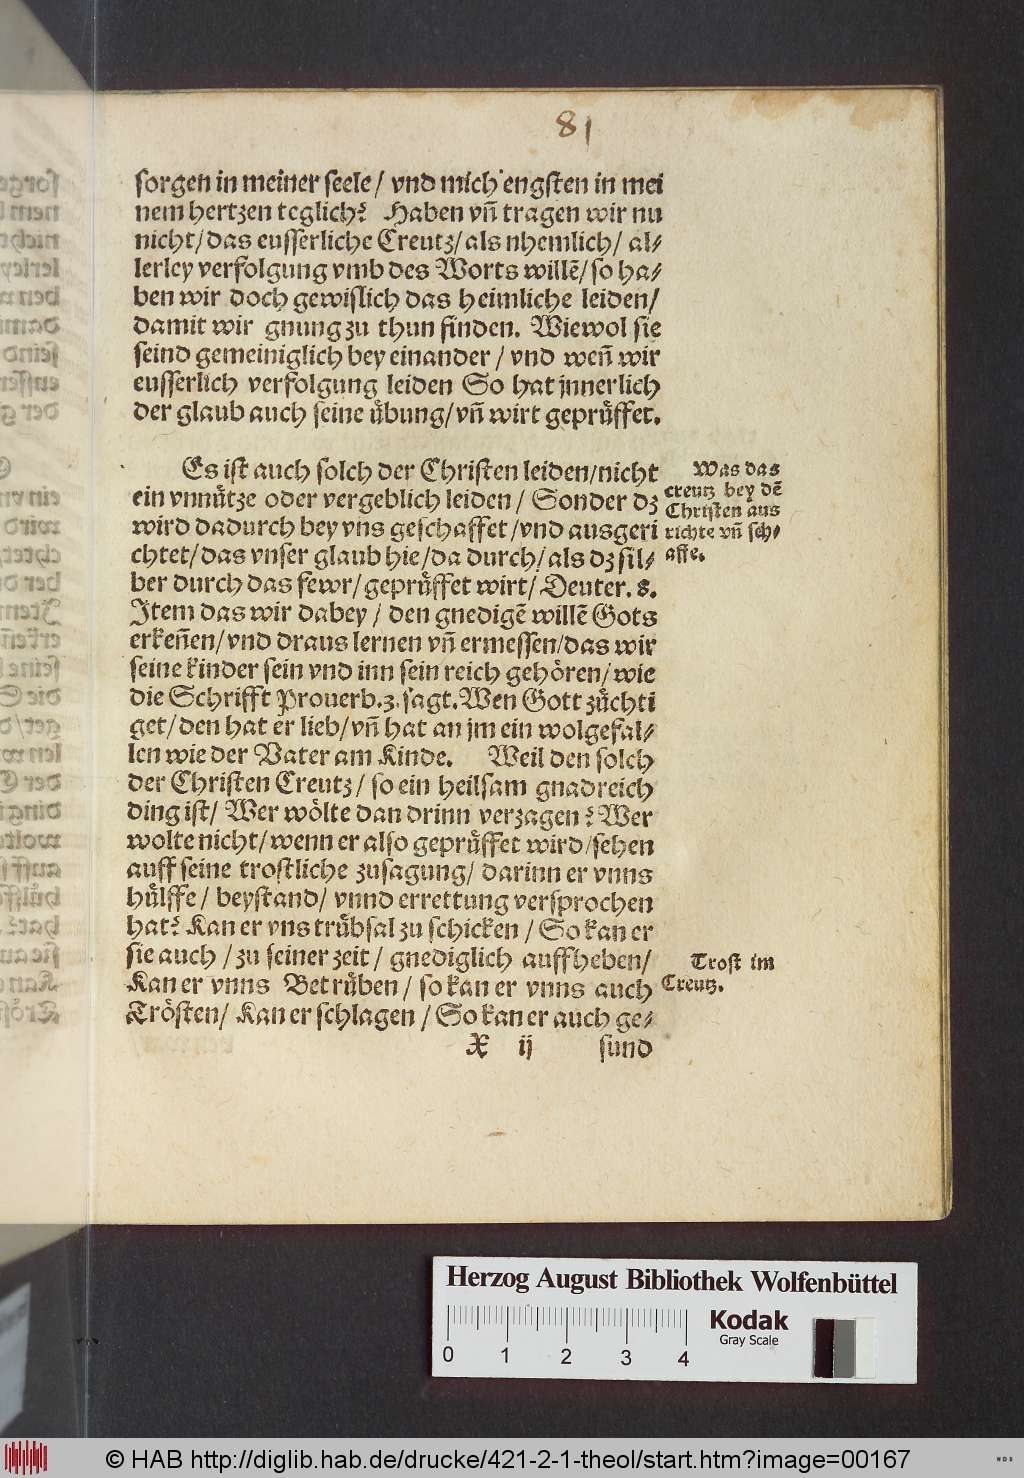 81
sorgen in meiner seele / vnd mich engsten in mei
nem hertzen teglich? Haben vñ tragen wir nu
nicht / das eusserliche Creutz / als nhemlich / al⸗
lerley verfolgung vmb des Worts willẽ / so ha⸗
ben wir doch gewislich das heimliche leiden /
damit wir gnung zu thun finden. Wiewol sie
seind gemeiniglich bey einander / vnd weñ wir
eusserlich verfolgung leiden So hat jnnerlich
der glaub auch seine uͤbung / vñ wirt gepruͤffet.
Es ist auch solch der Christen leiden / nicht
ein vnnuͤtze oder vergeblich leiden / Sonder dz
wird dadurch bey vns geschaffet / vnd ausgeri
chtet / das vnser glaub hie / da durch / als dz sil⸗
ber durch das fewr / gepruͤffet wirt / Deuter. 8.
Item das wir dabey / den gnedigẽ willẽ Gots
erkeñen / vnd draus lernen vñ ermessen / das wir
seine kinder sein vnd inn sein reich gehoͤren / wie
die Schrifft Prouerb. 3. sagt. Wen Gott zuͤchti
get / den hat er lieb / vñ hat an jm ein wolgefal⸗
len wie der Vater am Kinde. Weil den solch
der Christen Creutz / so ein heilsam gnadreich
ding ist / Wer woͤlte dan drinn verzagen? Wer
wolte nicht / wenn er also gepruͤffet wird / sehen
auff seine trostliche zusagung / darinn er vnns
huͤlffe / beystand / vnnd errettung versprochen
hat? Kan er vns truͤbsal zu schicken / So kan er
sie auch / zu seiner zeit / gnediglich auffheben /
Kan er vnns Betruͤben / so kan er vnns auch
Troͤsten / Kan er schlagen / So kan er auch ge⸗
X ij sund
Was das
creutz bey dẽ
Christen aus
richte vñ sch⸗
affe.
Trost im
Creutz.
Herzog August Bibliothek Wolfenbüttel
0 1 2 3 4
Kodak
Gray Scale
© HAB http://diglib.hab.de/drucke/421-2-1-theol/start.htm?image=00167